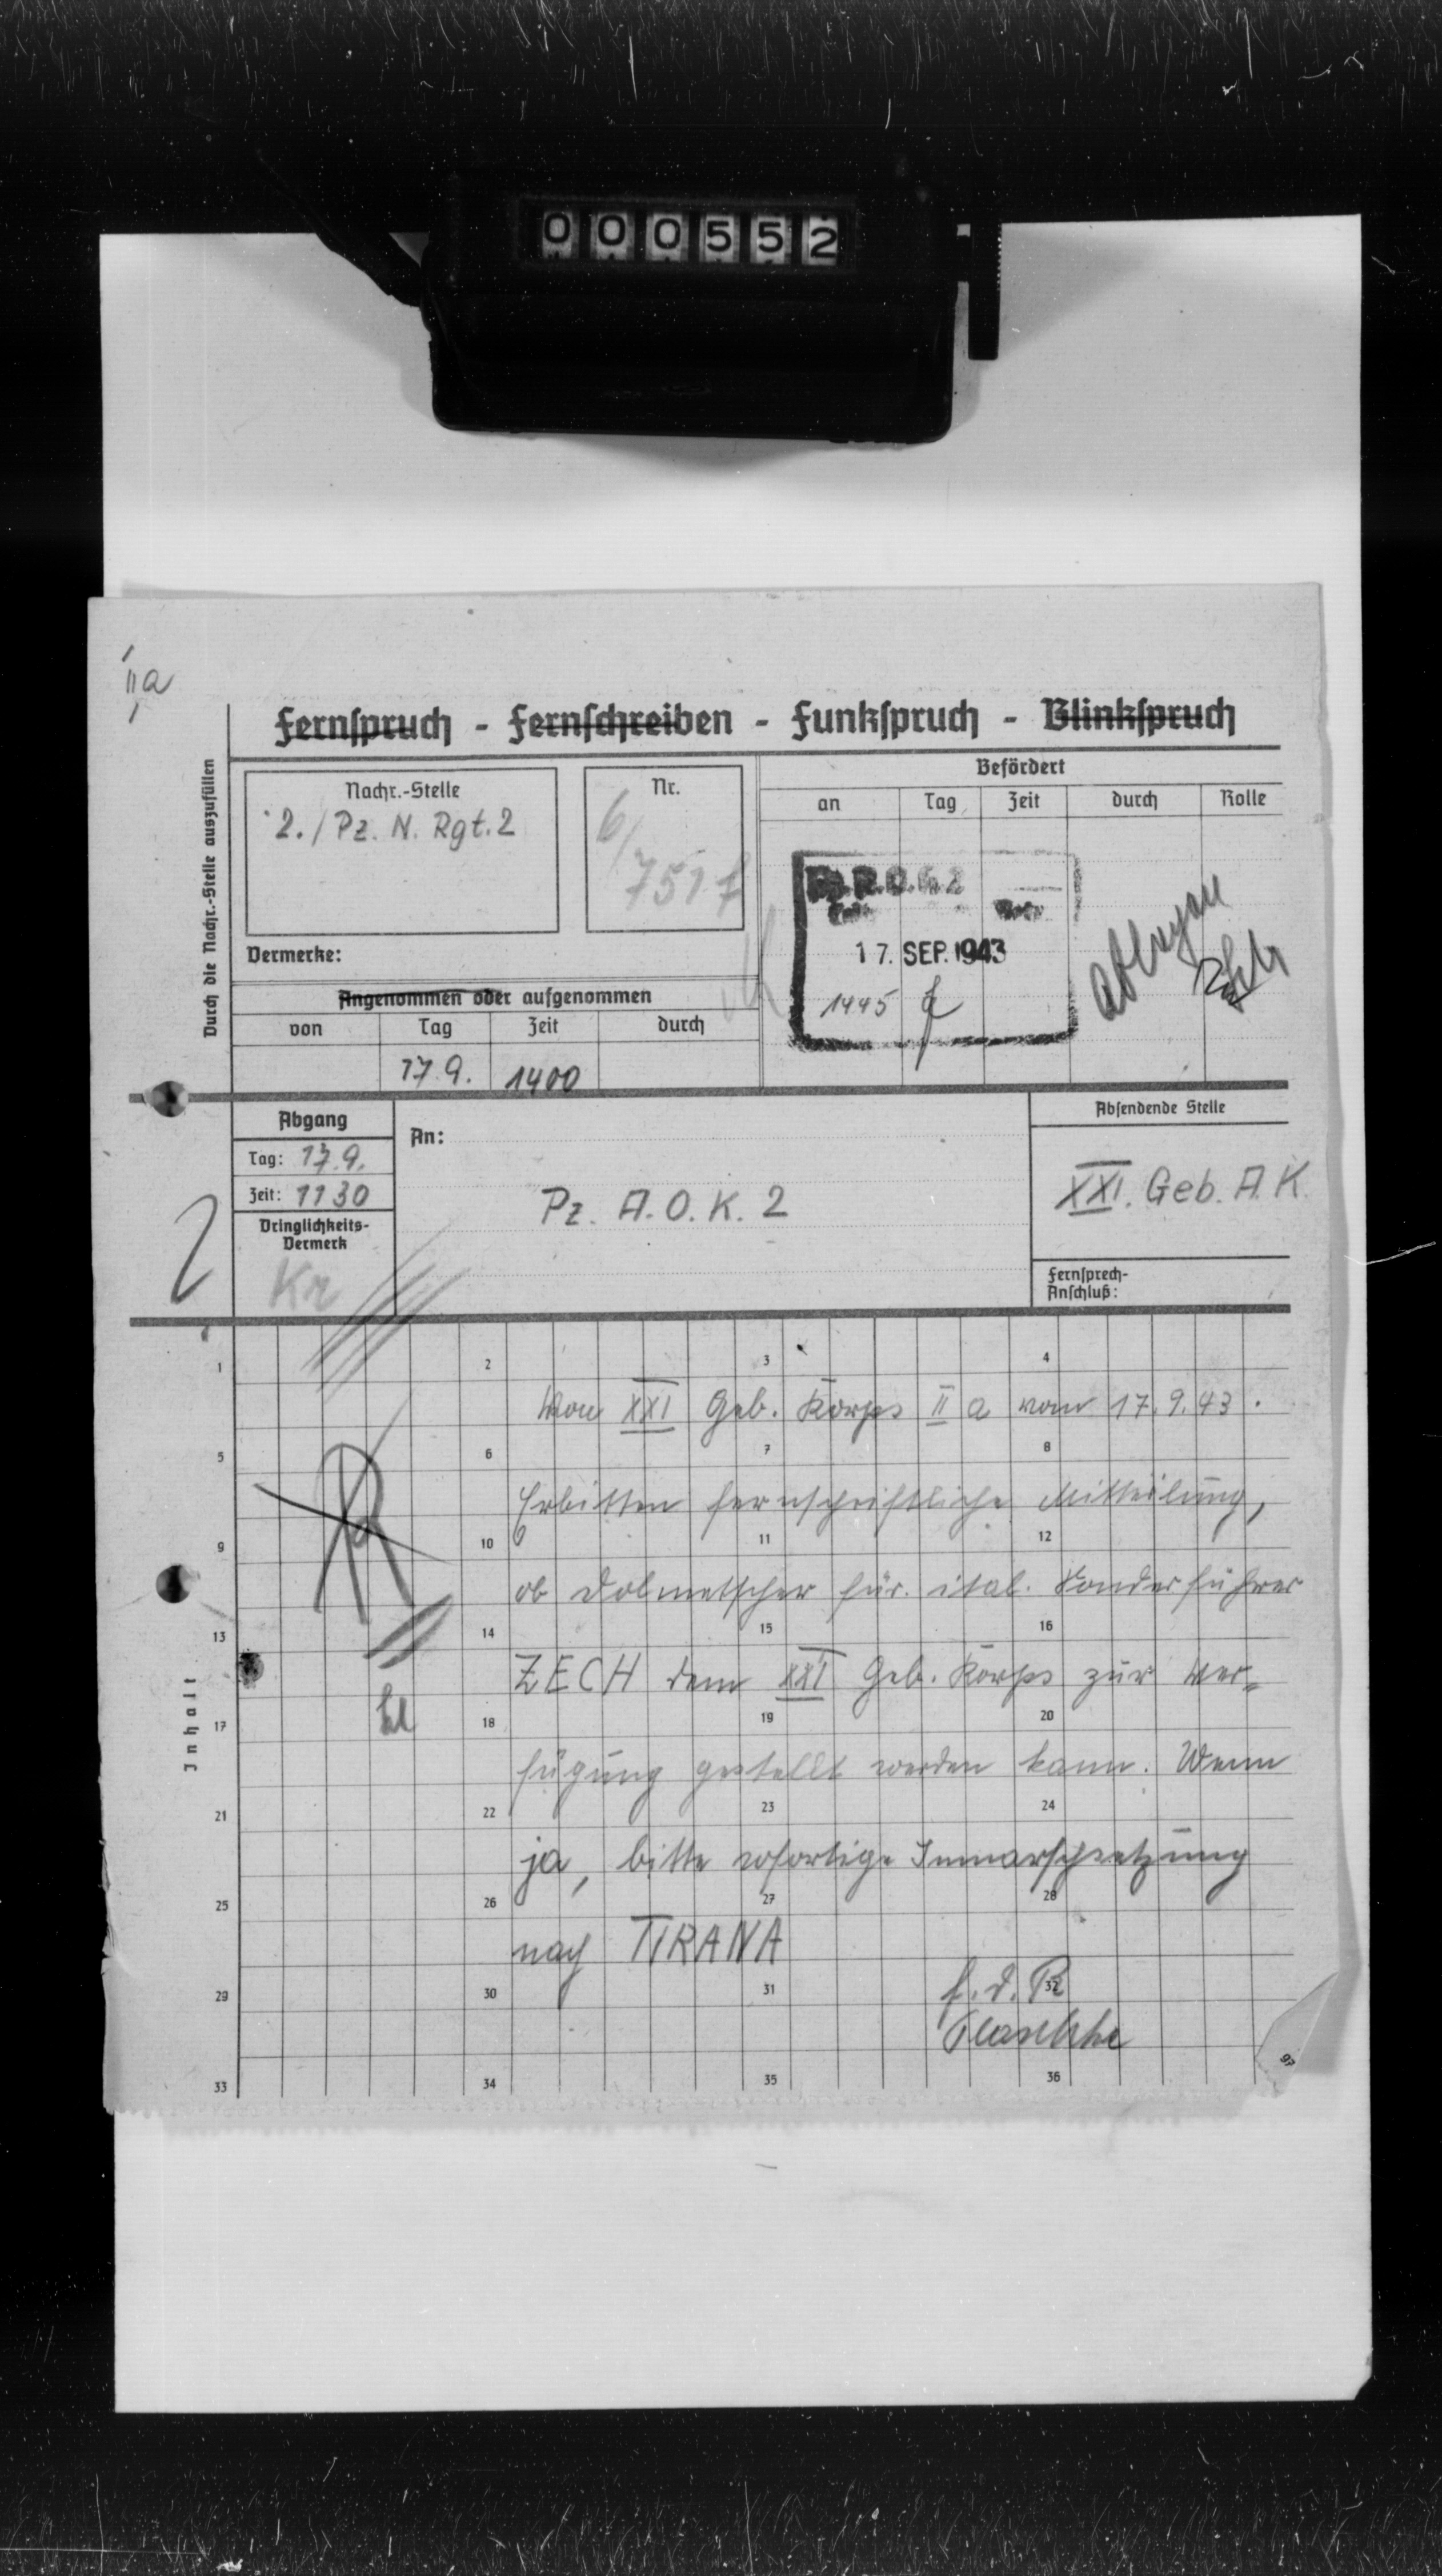 000552
IIa
Fernspruch - Fernschreiben - Funkspruch - Blinkspruch
Durch die Nachr.-Stelle auszufüllen
Nachr.-Stelle
2. / Pz. N. Rgt. 2
Nr.
6/
Vermerke:
Angenommen oder aufgenommen
von Tag Zeit durch
17.9. 1400
Befördert
an Tag Zeit durch Rolle
17. SEP. 1943
1445
Abgang
Tag: 17.9.
Zeit: 1130
Dringlichkeits-
Vermerk
Kr
An:
Pz. A.O.K. 2
Absendende Stelle
XXI. Geb. A.K.
Fernsprech-
Anschluß:
Inhalt
1 2 3 4
Von XXI Geb. Korps II a vom 17.9.43.
5 6 7 8
Erbitten fernschriftliche Mitteilung,
9 10 11 12
ob Dolmetscher für ital. Sonderführer
13 14 15 16
ZECH dem XXI Geb. Korps zur Ver=
17 18 19 20
fügung gestellt werden kann. Wenn
21 22 23 24
ja, bitte sofortige Inmarschsetzung
25 26 27 28
nach TIRANA
29 30 31 32
f.d.R
33 34 35 36
97